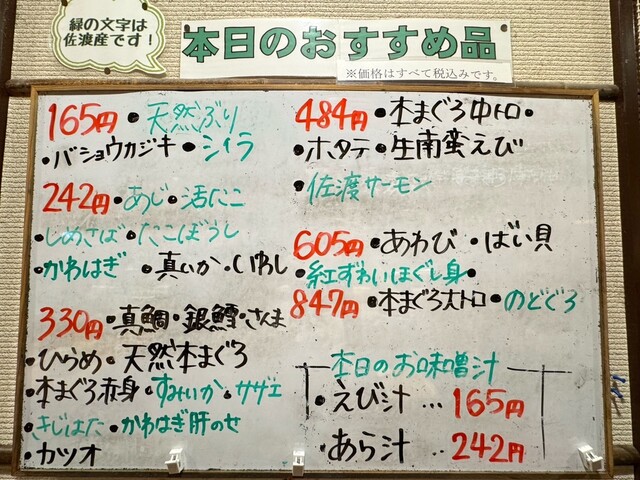 緑の文字は
佐渡産です！
本日のおすすめ品
※価格はすべて税込みです。
165円 ・天然ぶり
・バショウカジキ ・シイラ
242円 ・あじ ・活だこ
・しめさば ・たこぼうし
・かわはぎ ・真いか ・いわし
330円 ・真鯛 ・銀鱈 ・さんま
・ひらめ ・天然本まぐろ
・本まぐろ赤身 ・すみいか ・サザエ
・きじはた ・かわはぎ肝のせ
・カツオ
484円 ・本まぐろ中トロ・
・ホタテ ・生南蛮えび
・佐渡サーモン
605円 ・あわび ・ばい貝
・紅ずわいほぐし身・
847円 ・本まぐろ大トロ ・のどぐろ
本日のお味噌汁
・えび汁 … 165円
・あら汁 … 242円